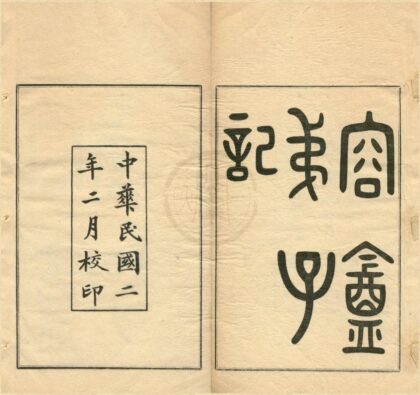 容盦
弟子
記
中華民國二
年二月校印